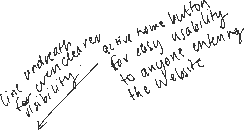 line undneath
for even clearer
visibility.
active home button
for easy usability
to anyone entering
the website